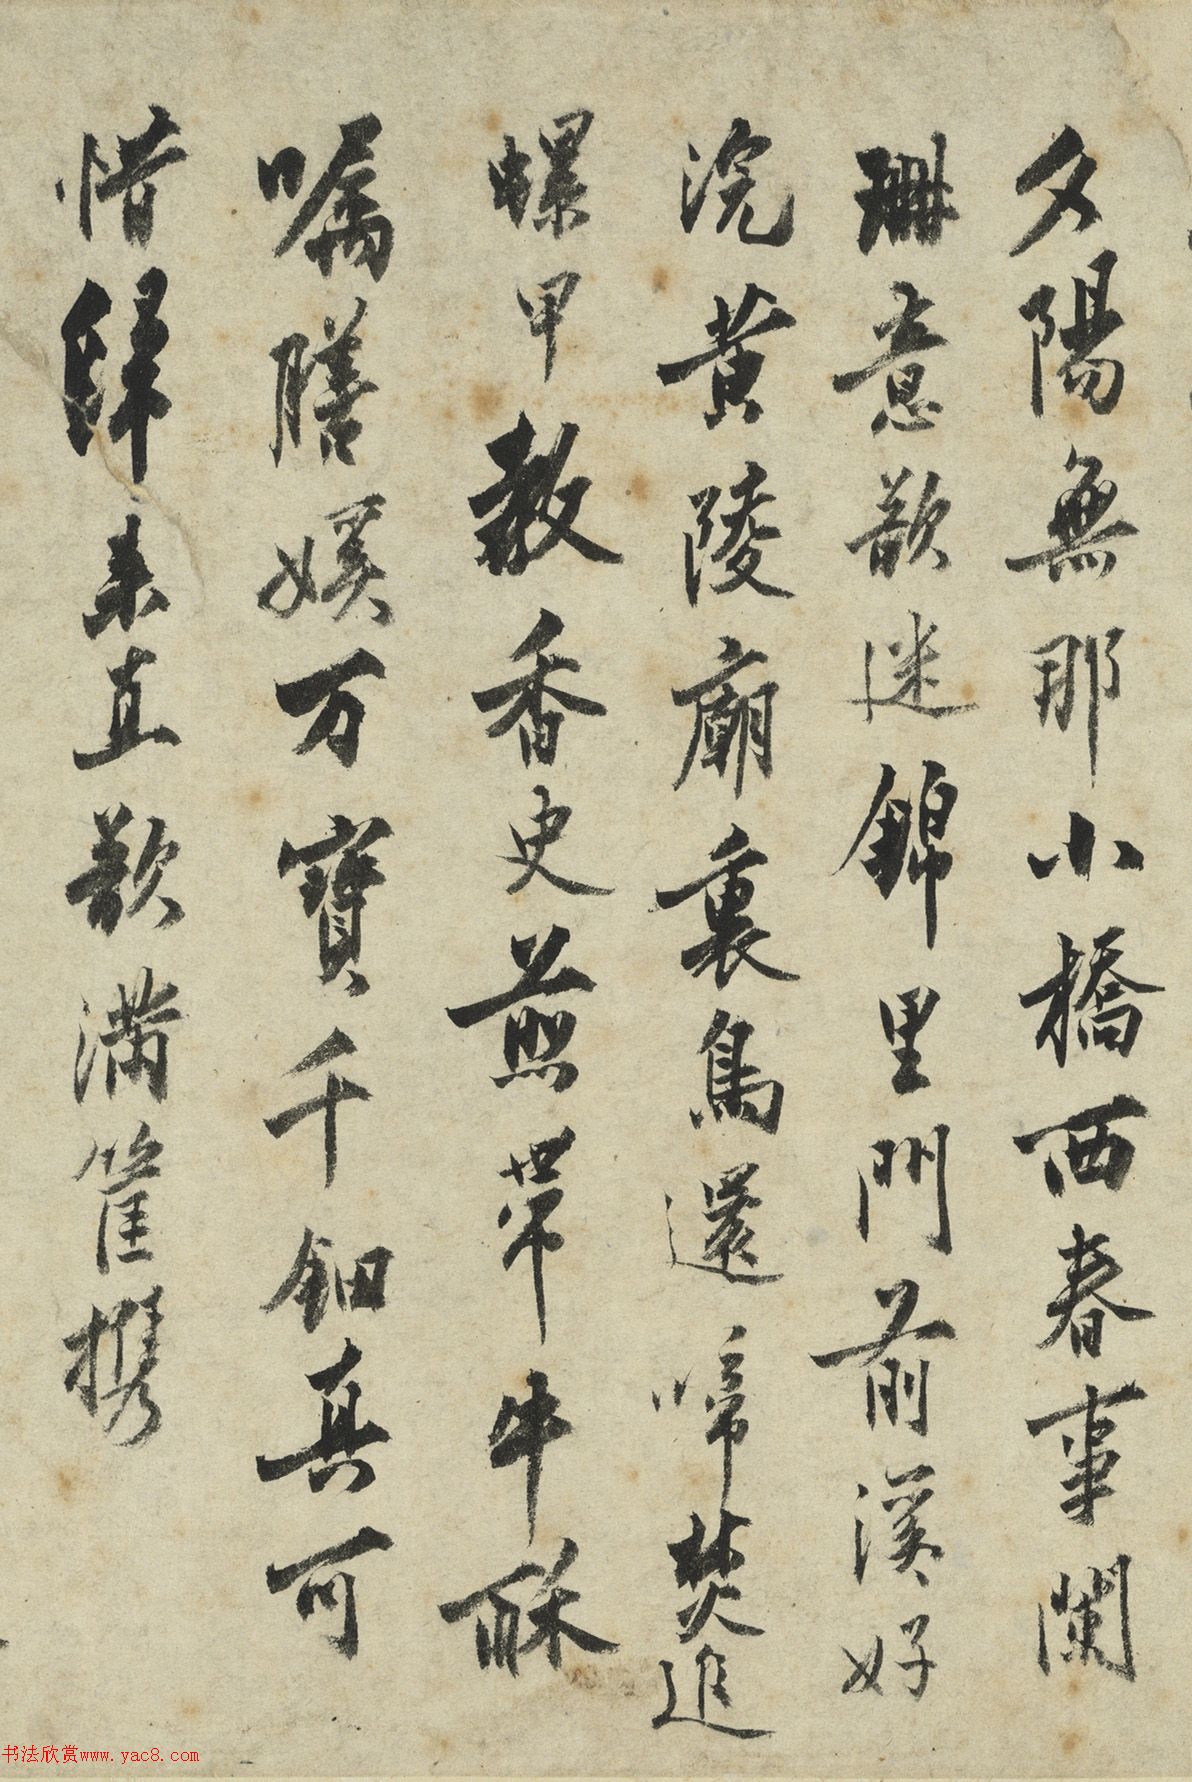 夕陽無那小橋西春事闌
珊意欲迷錦里門前溪好
浣黃陵廟裏鳥還啼焚進
螺甲散香史煎帶牛酥
囑膳媄万寶千鈿真可
惜歸來直欲滿筐攜
书法欣赏www.yac8.com